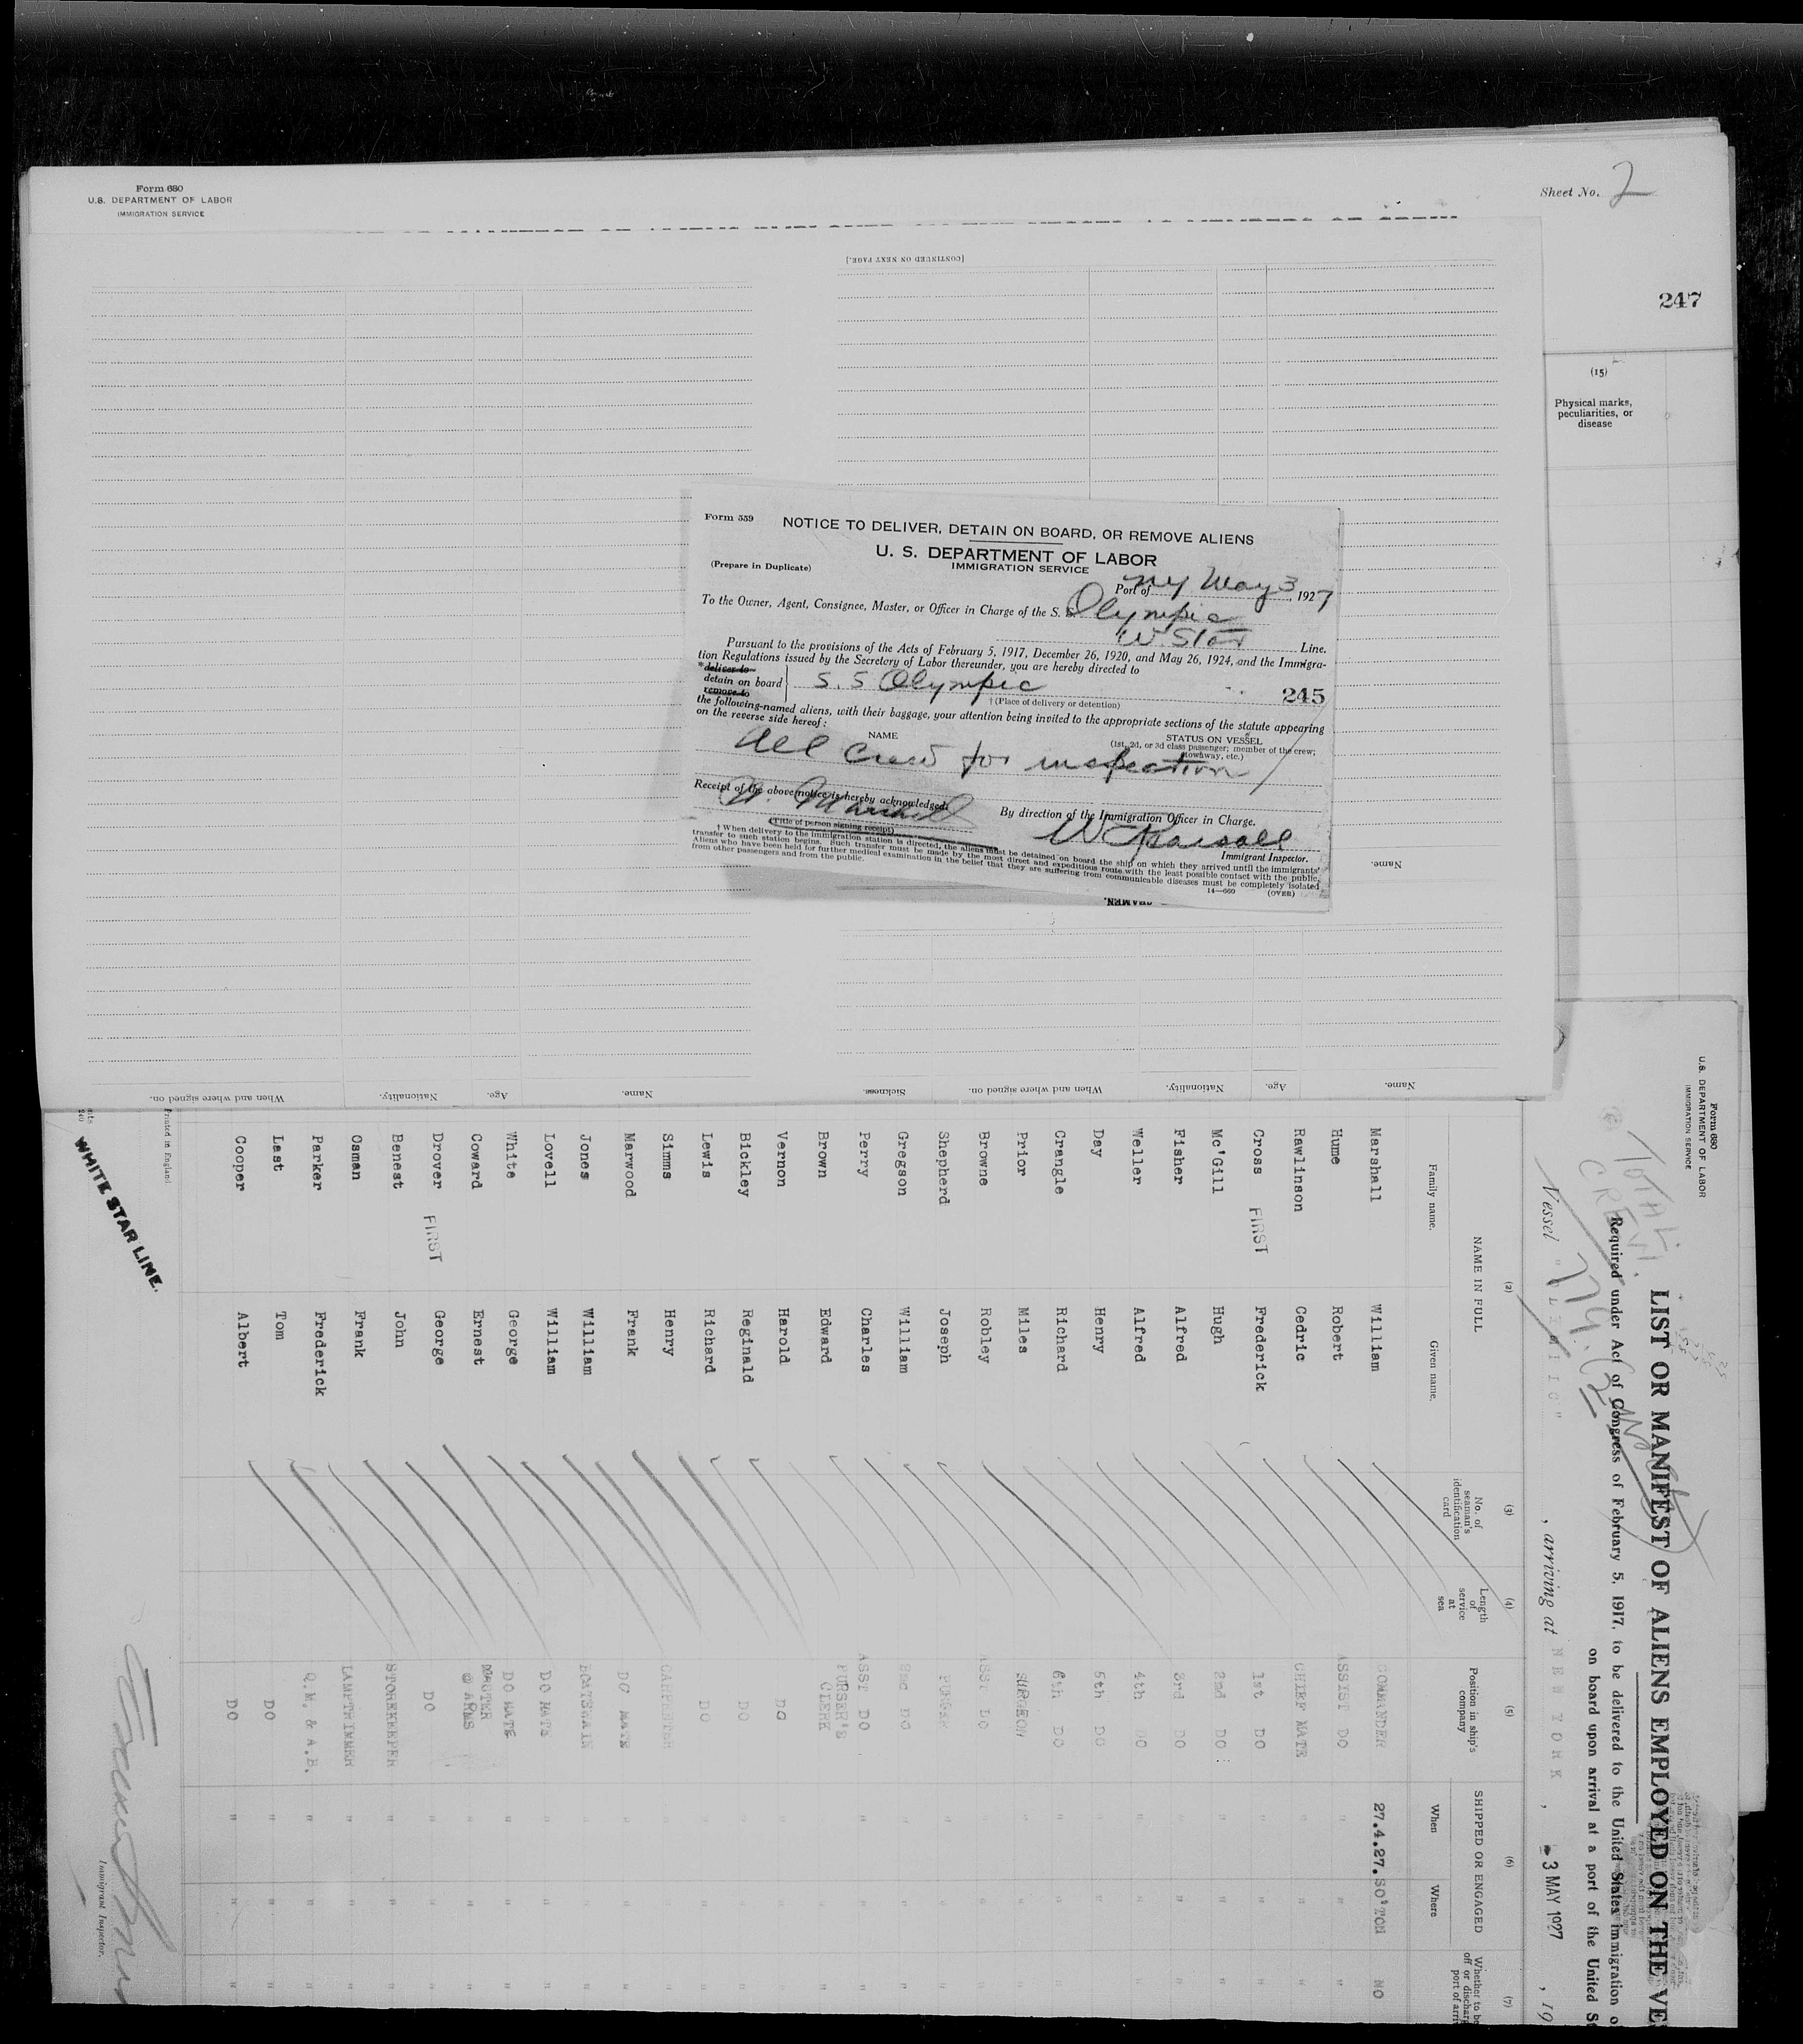 Form 680
U.S. DEPARTMENT OF LABOR
IMMIGRATION SERVICE
Sheet No. 2
247
(15)
Physical marks,
peculiarities, or
disease
[CONTINUED ON NEXT PAGE.]
Form 559
NOTICE TO DELIVER, DETAIN ON BOARD, OR REMOVE ALIENS
U. S. DEPARTMENT OF LABOR
IMMIGRATION SERVICE
(Prepare in Duplicate)
Port of NY May 3, 1927
To the Owner, Agent, Consignee, Master, or Officer in Charge of the S. S. Olympic
W. Star Line.
Pursuant to the provisions of the Acts of February 5, 1917, December 26, 1920, and May 26, 1924, and the Immigra-
tion Regulations issued by the Secretary of Labor thereunder, you are hereby directed to
*deliver to
detain on board
remove to
S. S Olympic
245
†(Place of delivery or detention)
the following-named aliens, with their baggage, your attention being invited to the appropriate sections of the statute appearing
on the reverse side hereof:
NAME
STATUS ON VESSEL
(1st, 2d, or 3d class passenger; member of the crew;
stowaway, etc.)
All crew for inspection
Receipt of the above notice is hereby acknowledged.
W. Marshall
(Title of person signing receipt)
By direction of the Immigration Officer in Charge.
Immigrant Inspector.
† When delivery to the immigration station is directed, the aliens must be detained on board the ship on which they arrived until the immigrants'
transfer to such station begins. Such transfer must be made by the most direct and expeditious route with the least possible contact with the public.
Aliens who have been held for further medical examination in the belief that they are suffering from communicable diseases must be completely isolated
from other passengers and from the public.
14—660
(OVER)
Name.
Name.
Age.
Nationality.
When and where signed on.
Sickness.
Name.
Age.
Nationality.
When and where signed on.
Form 680
U.S. DEPARTMENT OF LABOR
IMMIGRATION SERVICE
TOTAL
CREW.
774.
LIST OR MANIFEST OF ALIENS EMPLOYED ON THE VE
Required under Act of Congress of February 5, 1917, to be delivered to the United States immigration o
on board upon arrival at a port of the United S
Vessel "OLYMPIC", arriving at NEW YORK, -3 MAY 1927, 19
(2)
NAME IN FULL
Family name.
Given name.
(3)
No. of
seaman's
identification
card
(4)
Length
of
service
at
sea
(5)
Position in ship's
company
(6)
SHIPPED OR ENGAGED
When
Where
(7)
Whether to be
off or discharg
port of arri
Marshall William COMMANDER 27.4.27. SO'TON NO
Hume Robert ASSIST DO " " "
Rawlinson Cedric CHIEF MATE " " "
Cross FIRST Frederick 1st DO " " "
Mc'Gill Hugh 2nd DO " " "
Fisher Alfred 3rd DO " " "
Weller Alfred 4th DO " " "
Day Henry 5th DO " " "
Crangle Richard 6th DO " " "
Prior Miles SURGEON " " "
Browne Robley ASST DO " " "
Shepherd Joseph PURSER " " "
Gregson William 2nd DO " " "
Perry Charles ASST DO " " "
Brown Edward PURSER'S CLERK " " "
Vernon Harold DO " " "
Bickley Reginald DO " " "
Lewis Richard DO " " "
Simms Henry CARPENTER " " "
Marwood Frank DO MATE " " "
Jones William BOATSWAIN " " "
Lovell William DO MATE " " "
White George DO MATE " " "
Coward Ernest MASTER @ ARMS " " "
Drover FIRST George DO " " "
Benest John STOREKEEPER " " "
Osman Frank LAMPTRIMMER " " "
Parker Frederick Q.M. & A.B. " " "
Last Tom DO " " "
Cooper Albert DO " " "
Printed in England
WHITE STAR LINE.
Immigrant Inspector.